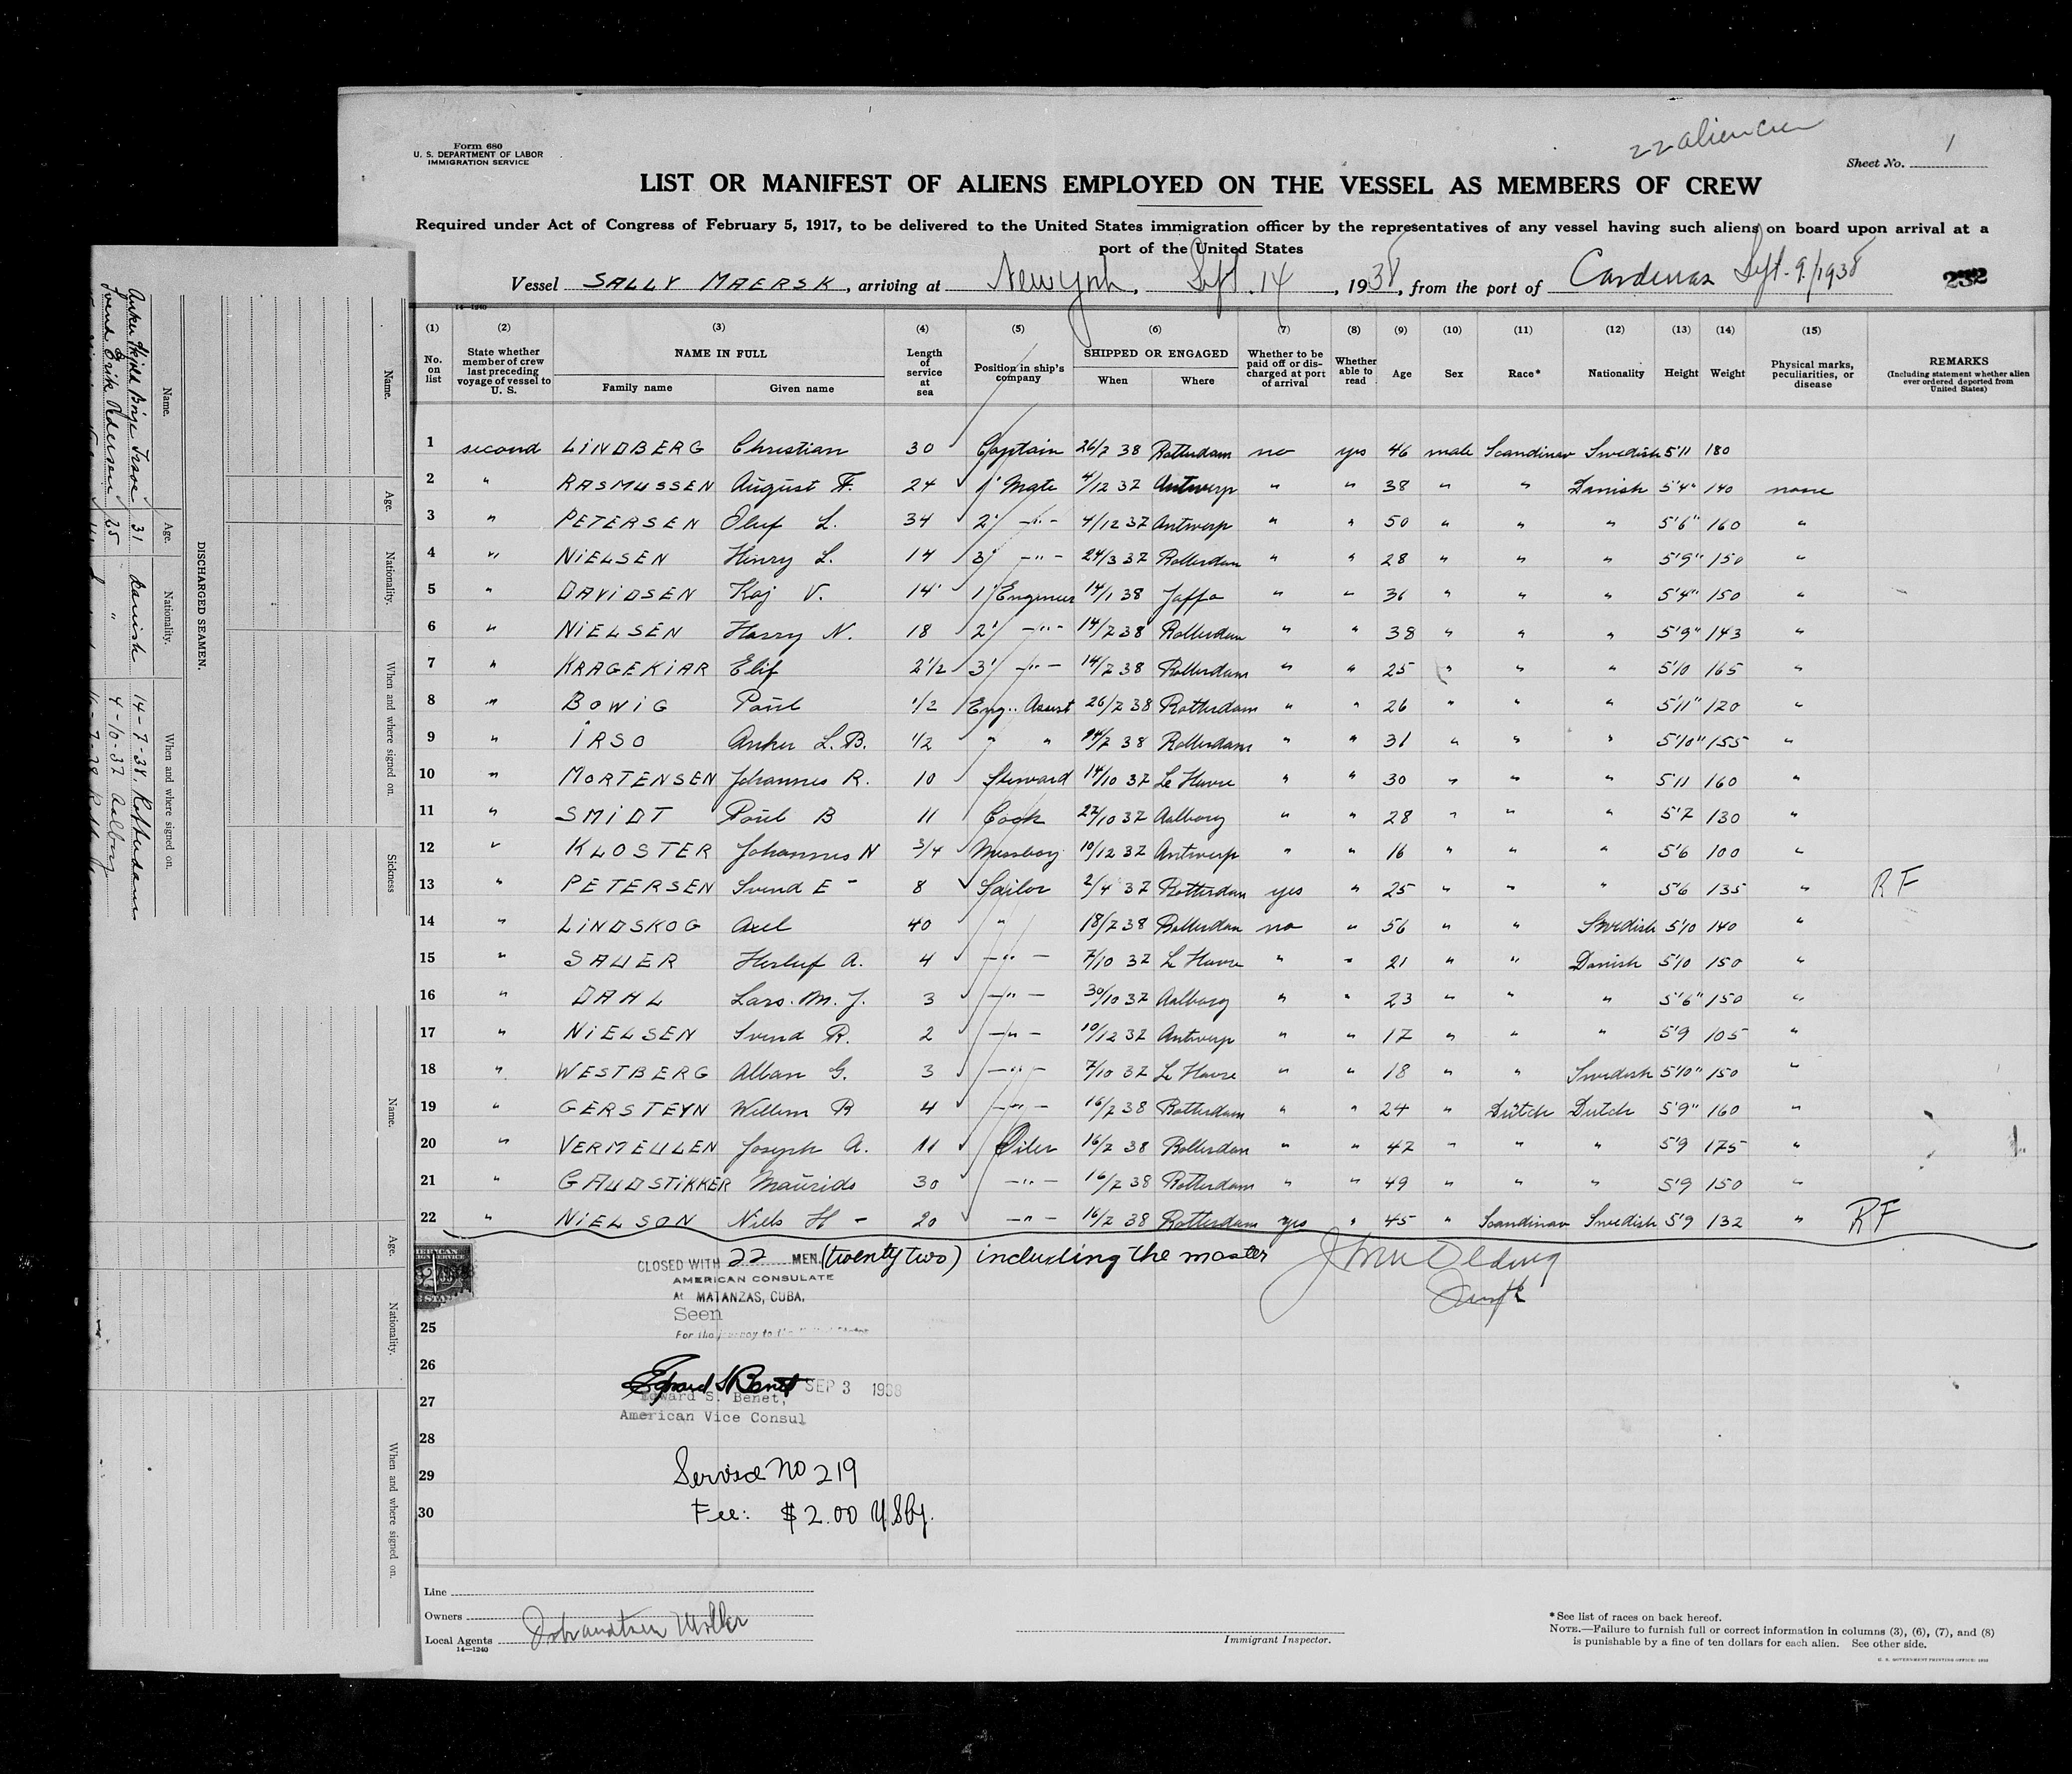 22 alien crew
Form 680
U. S. DEPARTMENT OF LABOR
IMMIGRATION SERVICE
Sheet No. 1
LIST OR MANIFEST OF ALIENS EMPLOYED ON THE VESSEL AS MEMBERS OF CREW
Required under Act of Congress of February 5, 1917, to be delivered to the United States immigration officer by the representatives of any vessel having such aliens on board upon arrival at a
port of the United States
Vessel SALLY MAERSK, arriving at New York, Sept. 14, 1938, from the port of Cardenas Sept. 9/1938 232
14—1240
(1) (2) (3) (4) (5) (6) (7) (8) (9) (10) (11) (12) (13) (14) (15)
No. on list State whether member of crew last preceding voyage of vessel to U. S. NAME IN FULL Family name Given name Length of service at sea Position in ship's company SHIPPED OR ENGAGED When Where Whether to be paid off or discharged at port of arrival Whether able to read Age Sex Race* Nationality Height Weight Physical marks, peculiarities, or disease REMARKS (Including statement whether alien ever ordered deported from United States)
1 second LINDBERG Christian 30 Captain 26/7 38 Rotterdam no yes 46 male Scandinav Swedish 5'11 180
2 " RASMUSSEN August F. 24 1' Mate 4/12 37 Antwerp " " 38 " " Danish 5'4" 140 none
3 " PETERSEN Oluf L. 34 2' -"- 4/12 37 Antwerp " " 50 " " " 5'6" 160 "
4 " NIELSEN Henry L. 14 3' -"- 24/3 37 Rotterdam " " 28 " " " 5'9" 150 "
5 " DAVIDSEN Kaj V. 14 1' Engineer 14/1 38 Jaffa " " 36 " " " 5'4" 150 "
6 " NIELSEN Harry N. 18 2' -"- 14/7 38 Rotterdam " " 38 " " " 5'9" 143 "
7 " KRAGEKIAR Elif 2 1/2 3' -"- 14/7 38 Rotterdam " " 25 " " " 5'10 165 "
8 " BOWIG Paul 1/2 Eng. Assist 26/7 38 Rotterdam " " 26 " " " 5'11" 120 "
9 " IRSO Anker L.B. 1/2 " " 14/7 38 Rotterdam " " 31 " " " 5'10" 155 "
10 " MORTENSEN Johannes R. 10 Steward 14/10 37 Le Havre " " 30 " " " 5'11 160 "
11 " SMIDT Poul B 11 Cook 27/10 37 Aalborg " " 28 " " " 5'7 130 "
12 " KLOSTER Johannes N 3/4 Messboy 10/12 37 Antwerp " " 16 " " " 5'6 100 "
13 " PETERSEN Svend E - 8 Sailor 2/4 37 Rotterdam yes " 25 " " " 5'6 135 " RF
14 " LINDSKOG Axel 40 " 18/7 38 Rotterdam no " 56 " " Swedish 5'10 140 "
15 " SAUER Herluf A. 4 -"- 7/10 37 Le Havre " " 21 " " Danish 5'10 150 "
16 " DAHL Lars. M. J. 3 -"- 30/10 37 Aalborg " " 23 " " " 5'6" 150 "
17 " NIELSEN Svend R. 2 -"- 10/12 37 Antwerp " " 17 " " " 5'9 105 "
18 " WESTBERG Alban G. 3 -"- 7/10 37 Le Havre " " 18 " " Swedish 5'10" 150 "
19 " GERSTEYN Willem R 4 -"- 16/7 38 Rotterdam " " 24 " Dutch Dutch 5'9" 160 "
20 " VERMEULEN Joseph A. 11 Oiler 16/7 38 Rotterdam " " 47 " " " 5'9 175 "
21 " GAUDSTIKKER Maurids 30 -"- 16/7 38 Rotterdam " " 49 " " " 5'9 150 "
22 " NIELSON Nills H - 20 -"- 16/7 38 Rotterdam yes " 45 " Scandinav Swedish 5'9 132 " RF
CLOSED WITH 22 MEN (twenty two) including the master
AMERICAN CONSULATE
At MATANZAS, CUBA.
Seen
For the journey to the
25
26
Edward S. Benet SEP 3 1938
27
Edward S. Benet,
American Vice Consul
28
29 Service No 219
30 Fee: $2.00
Line
Owners
Local Agents
14—1240
Immigrant Inspector.
*See list of races on back hereof.
NOTE.—Failure to furnish full or correct information in columns (3), (6), (7), and (8)
is punishable by a fine of ten dollars for each alien. See other side.
U. S. GOVERNMENT PRINTING OFFICE
DISCHARGED SEAMEN.
Name. Age. Nationality. When and where signed on.
31 Danish 14-7-38. Rotterdam
Svend Erik Pedersen 25 " 4-10-37 Aalborg
Name. Age. Nationality. When and where signed on. Sickness
Name. Age. Nationality. When and where signed on.